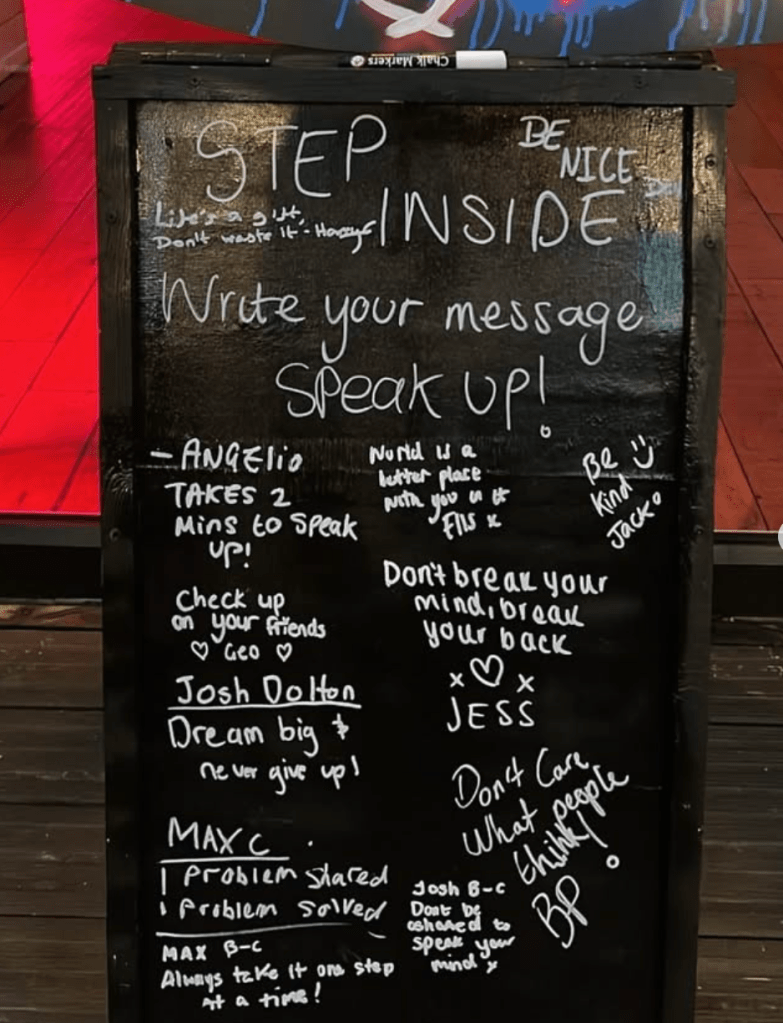 Chalk Markers
STEP
BE
NICE
INSIDE
Life's a gift,
Don't waste it -
Write your message
SPeak UP!
- ANGELIO
TAKES 2
Mins to SPeak
UP!
World is a
better place
with you in it
Ells x
Be
Kind
Jack
Check up
on your friends
♡ Geo ♡
Don't break your
mind, break
your back
x ♡ x
JESS
Josh Dolton
Dream big &
never give up!
Don't Care
What people
think!
BP
MAX C
1 Problem shared
1 Problem solved
Josh B-C
Dont be
ashamed to
speak your
mind x
MAX B-C
Always take it one step
At a time!